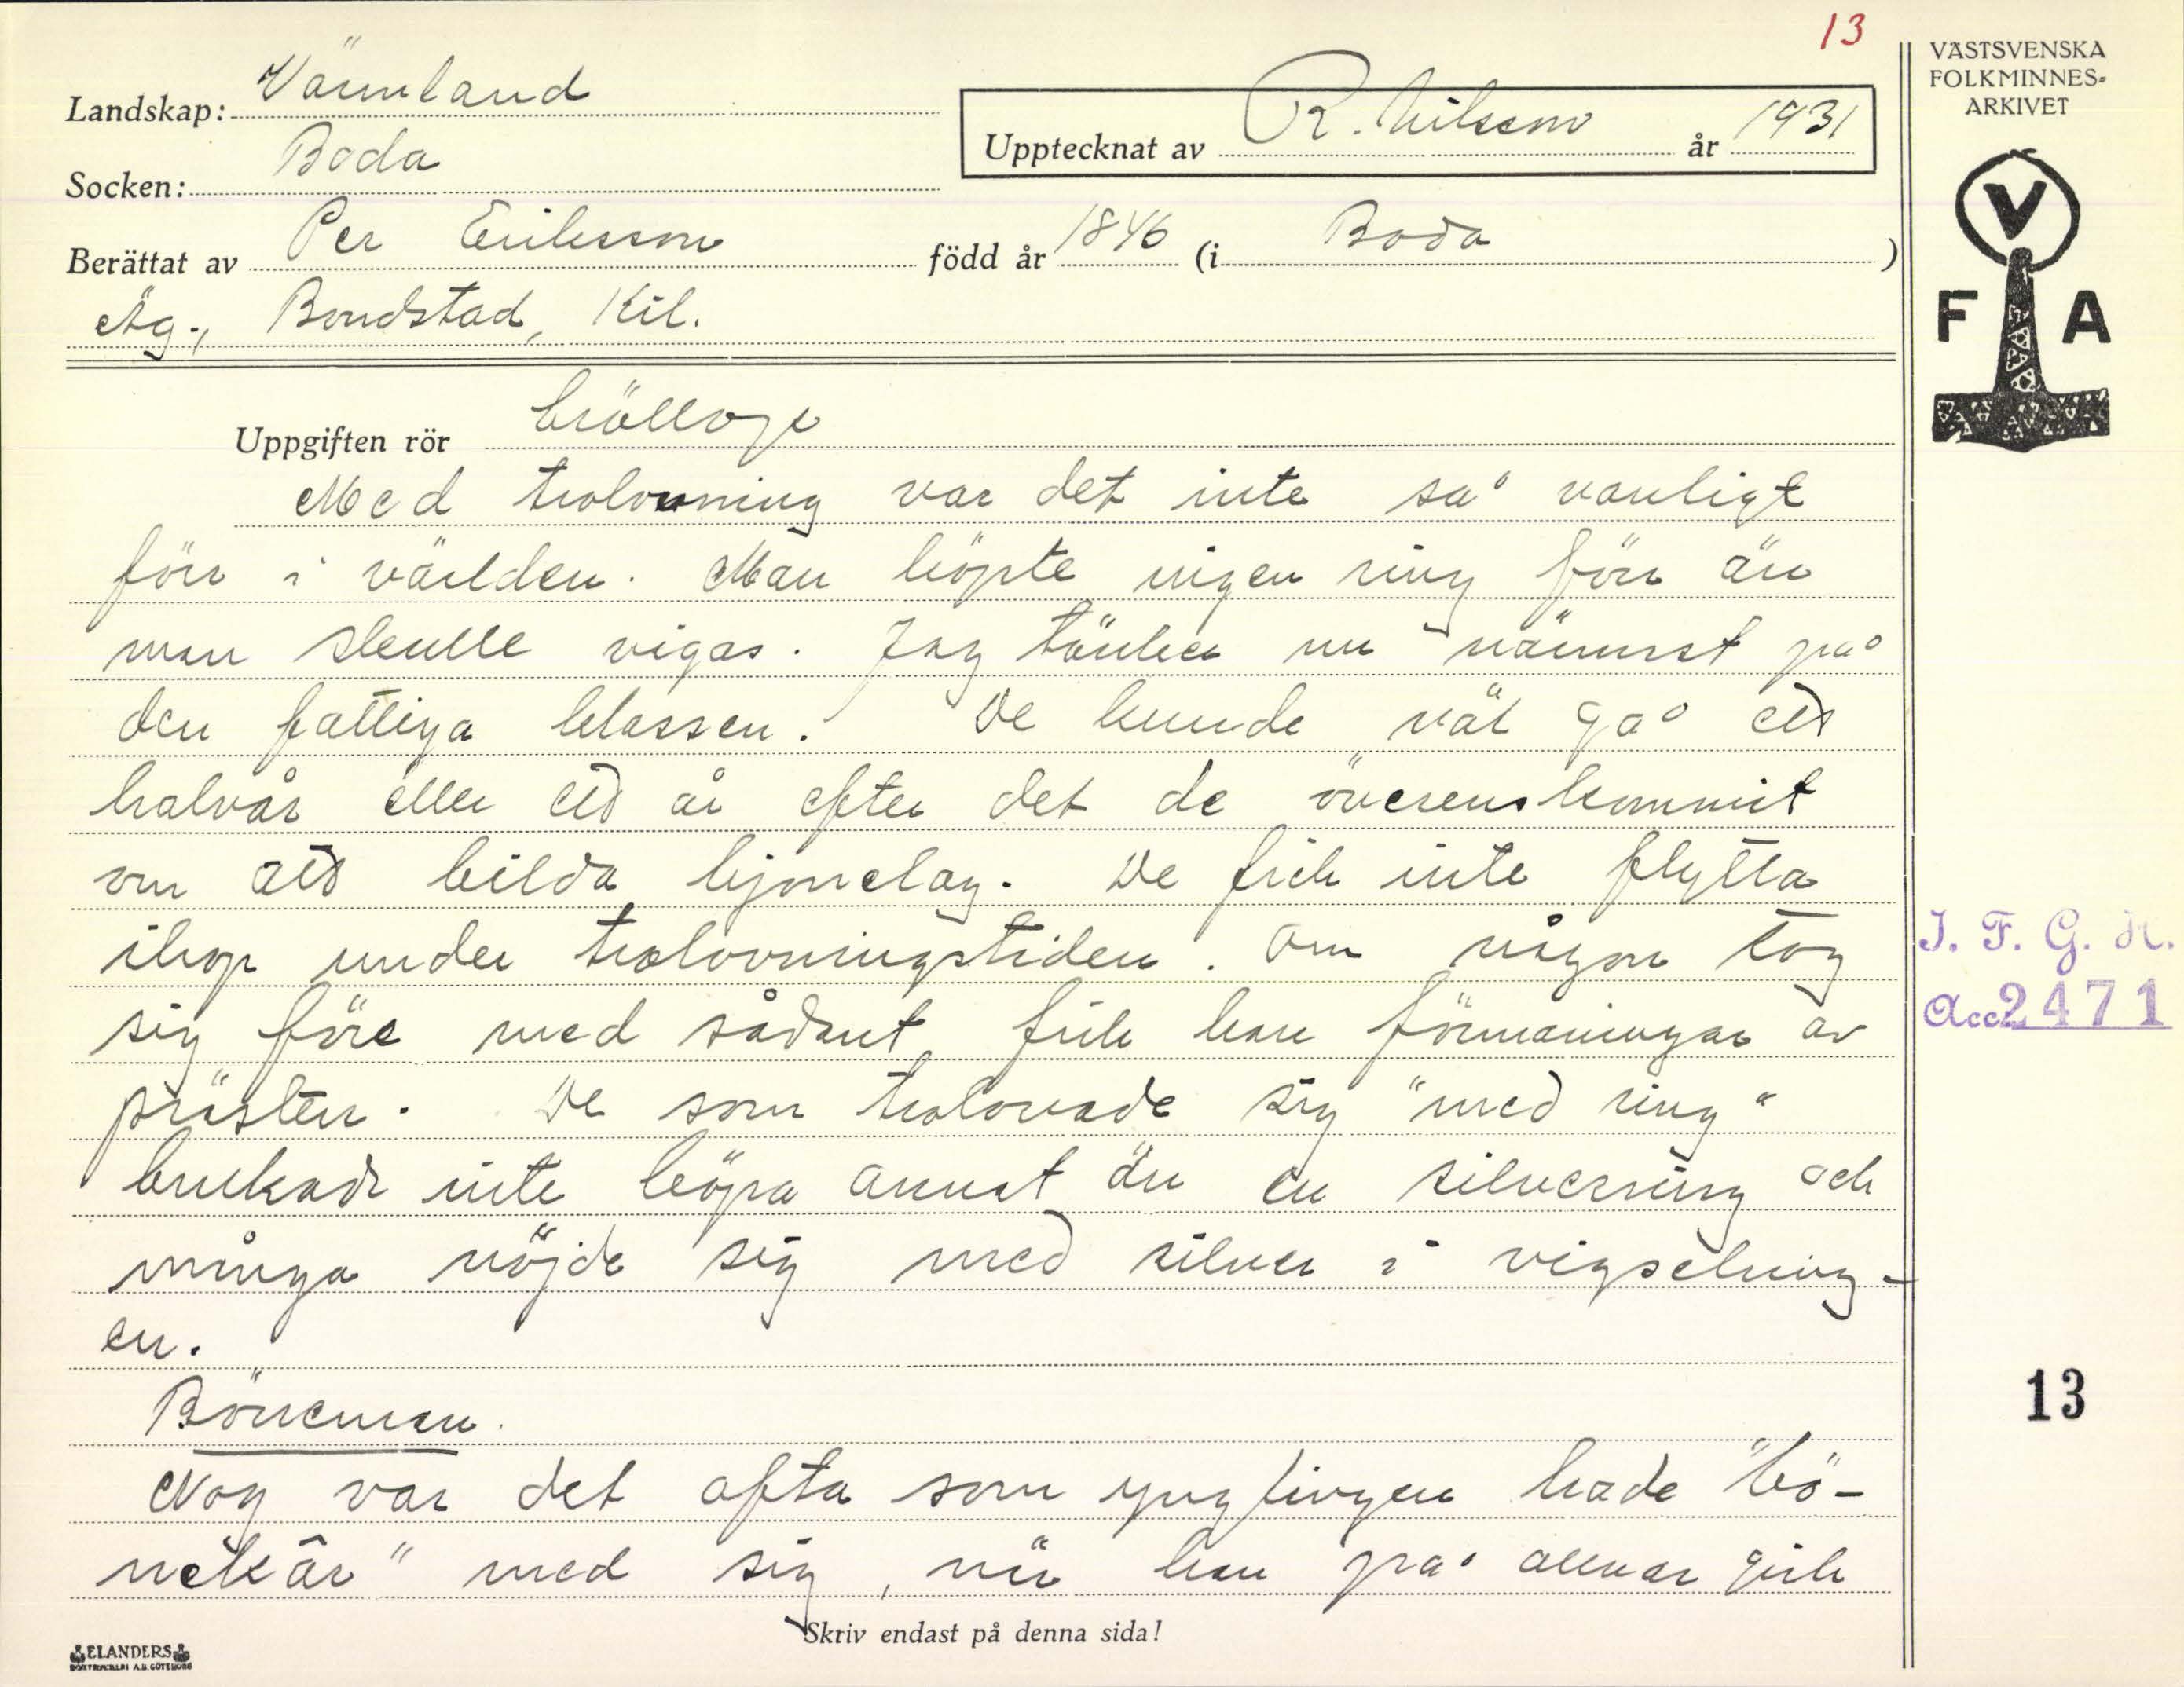 13
VÄSTSVENSKA
FOLKMINNES-
ARKIVET
Landskap: Värmland
Upptecknat av R. Nilsson år 1931
Socken: Boda
Berättat av Per Eriksson född år 1846 (i Boda)
Äg., Bondstad, Kil.
V
F A
Uppgiften rör bröllop
Med trolovning var det inte så vanligt
förr i världen. Man köpte ingen ring förr än
man skulle vigas. Jag tänker nu närmast på
den fattiga klassen. De kunde väl gå ett
halvår eller ett år efter det de överenskommit
om att bilda bjonelag. De fick inte flytta
ihop under trolovningstiden. Om någon tog
sig före med sådant fick han förmaningar av
prästen. De som trolovade sig "med ring"
brukade inte köpa annat än en silverring och
många nöjde sig med silver i vigselring-
en.
Böneman.
Nog var det ofta som ynglingen hade "bö-
nekâr" med sig, när han på allvar gick
Skriv endast på denna sida!
J. F. G. H.
Acc 2471
13
ELANDERS
BOKTRYCKERI A.B. GÖTEBORG